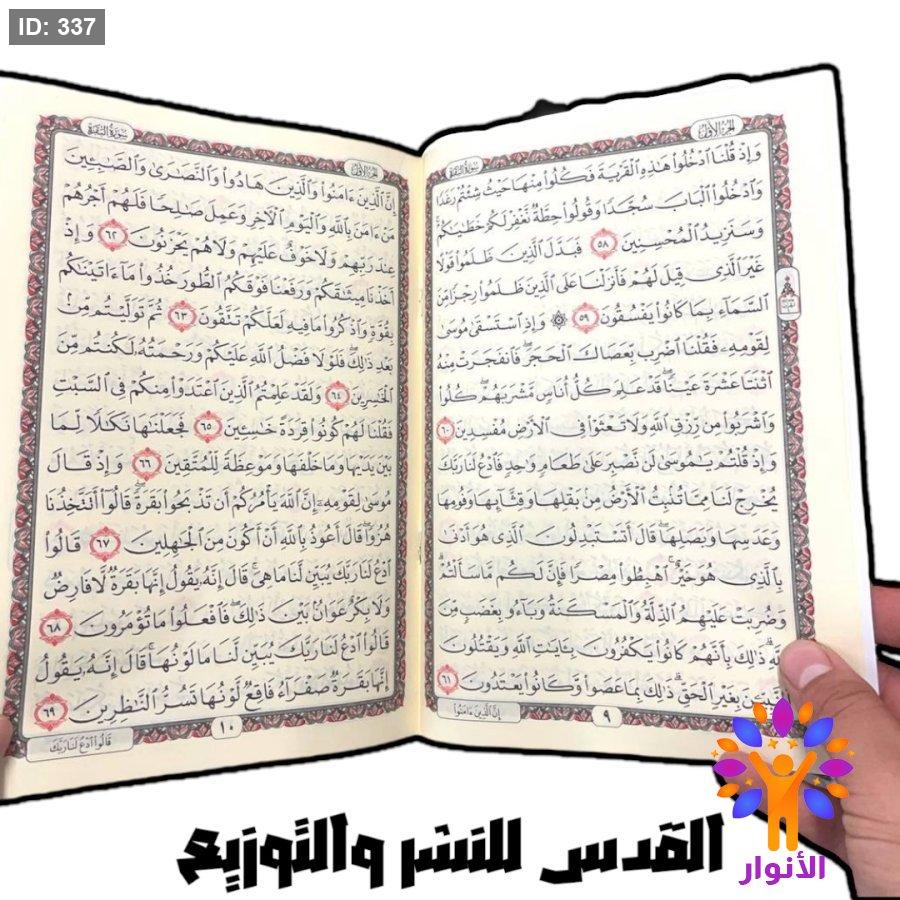 ID: 337
الجزء الأول
سورة البقرة
وَإِذْ قُلْنَا ٱدْخُلُوا۟ هَٰذِهِ ٱلْقَرْيَةَ فَكُلُوا۟ مِنْهَا حَيْثُ شِئْتُمْ رَغَدًا
وَٱدْخُلُوا۟ ٱلْبَابَ سُجَّدًا وَقُولُوا۟ حِطَّةٌ نَّغْفِرْ لَكُمْ خَطَٰيَٰكُمْ
وَسَنَزِيدُ ٱلْمُحْسِنِينَ ٥٨ فَبَدَّلَ ٱلَّذِينَ ظَلَمُوا۟ قَوْلًا
غَيْرَ ٱلَّذِى قِيلَ لَهُمْ فَأَنزَلْنَا عَلَى ٱلَّذِينَ ظَلَمُوا۟ رِجْزًا مِّنَ
ٱلسَّمَآءِ بِمَا كَانُوا۟ يَفْسُقُونَ ٥٩ ۞ وَإِذِ ٱسْتَسْقَىٰ مُوسَىٰ
لِقَوْمِهِۦ فَقُلْنَا ٱضْرِب بِّعَصَاكَ ٱلْحَجَرَ ۖ فَٱنفَجَرَتْ مِنْهُ
ٱثْنَتَا عَشْرَةَ عَيْنًا ۖ قَدْ عَلِمَ كُلُّ أُنَاسٍ مَّشْرَبَهُمْ ۖ كُلُوا۟
وَٱشْرَبُوا۟ مِن رِّزْقِ ٱللَّهِ وَلَا تَعْثَوْا۟ فِى ٱلْأَرْضِ مُفْسِدِينَ ٦٠
وَإِذْ قُلْتُمْ يَٰمُوسَىٰ لَن نَّصْبِرَ عَلَىٰ طَعَامٍ وَٰحِدٍ فَٱدْعُ لَنَا رَبَّكَ
يُخْرِجْ لَنَا مِمَّا تُنۢبِتُ ٱلْأَرْضُ مِنۢ بَقْلِهَا وَقِثَّآئِهَا وَفُومِهَا
وَعَدَسِهَا وَبَصَلِهَا ۖ قَالَ أَتَسْتَبْدِلُونَ ٱلَّذِى هُوَ أَدْنَىٰ
بِٱلَّذِى هُوَ خَيْرٌ ۚ ٱهْبِطُوا۟ مِصْرًا فَإِنَّ لَكُم مَّا سَأَلْتُمْ ۗ
وَضُرِبَتْ عَلَيْهِمُ ٱلذِّلَّةُ وَٱلْمَسْكَنَةُ وَبَآءُو بِغَضَبٍ مِّنَ
ٱللَّهِ ۗ ذَٰلِكَ بِأَنَّهُمْ كَانُوا۟ يَكْفُرُونَ بِـَٔايَٰتِ ٱللَّهِ وَيَقْتُلُونَ
ٱلنَّبِيِّـۧنَ بِغَيْرِ ٱلْحَقِّ ۗ ذَٰلِكَ بِمَا عَصَوا۟ وَّكَانُوا۟ يَعْتَدُونَ ٦١
٩
إِنَّ ٱلَّذِينَ ءَامَنُوا۟
الجزء الأول
سورة البقرة
إِنَّ ٱلَّذِينَ ءَامَنُوا۟ وَٱلَّذِينَ هَادُوا۟ وَٱلنَّصَٰرَىٰ وَٱلصَّٰبِـِٔينَ
مَنْ ءَامَنَ بِٱللَّهِ وَٱلْيَوْمِ ٱلْـَٔاخِرِ وَعَمِلَ صَٰلِحًا فَلَهُمْ أَجْرُهُمْ
عِندَ رَبِّهِمْ وَلَا خَوْفٌ عَلَيْهِمْ وَلَا هُمْ يَحْزَنُونَ ٦٢ وَإِذْ
أَخَذْنَا مِيثَٰقَكُمْ وَرَفَعْنَا فَوْقَكُمُ ٱلطُّورَ خُذُوا۟ مَآ ءَاتَيْنَٰكُم
بِقُوَّةٍ وَٱذْكُرُوا۟ مَا فِيهِ لَعَلَّكُمْ تَتَّقُونَ ٦٣ ثُمَّ تَوَلَّيْتُم مِّنۢ
بَعْدِ ذَٰلِكَ ۖ فَلَوْلَا فَضْلُ ٱللَّهِ عَلَيْكُمْ وَرَحْمَتُهُۥ لَكُنتُم مِّنَ
ٱلْخَٰسِرِينَ ٦٤ وَلَقَدْ عَلِمْتُمُ ٱلَّذِينَ ٱعْتَدَوْا۟ مِنكُمْ فِى ٱلسَّبْتِ
فَقُلْنَا لَهُمْ كُونُوا۟ قِرَدَةً خَٰسِـِٔينَ ٦٥ فَجَعَلْنَٰهَا نَكَٰلًا لِّمَا
بَيْنَ يَدَيْهَا وَمَا خَلْفَهَا وَمَوْعِظَةً لِّلْمُتَّقِينَ ٦٦ وَإِذْ قَالَ
مُوسَىٰ لِقَوْمِهِۦٓ إِنَّ ٱللَّهَ يَأْمُرُكُمْ أَن تَذْبَحُوا۟ بَقَرَةً ۖ قَالُوٓا۟ أَتَتَّخِذُنَا
هُزُوًا ۖ قَالَ أَعُوذُ بِٱللَّهِ أَنْ أَكُونَ مِنَ ٱلْجَٰهِلِينَ ٦٧ قَالُوا۟
ٱدْعُ لَنَا رَبَّكَ يُبَيِّن لَّنَا مَا هِىَ ۚ قَالَ إِنَّهُۥ يَقُولُ إِنَّهَا بَقَرَةٌ لَّا فَارِضٌ
وَلَا بِكْرٌ عَوَانٌۢ بَيْنَ ذَٰلِكَ ۖ فَٱفْعَلُوا۟ مَا تُؤْمَرُونَ ٦٨
قَالُوا۟ ٱدْعُ لَنَا رَبَّكَ يُبَيِّن لَّنَا مَا لَوْنُهَا ۚ قَالَ إِنَّهُۥ يَقُولُ
إِنَّهَا بَقَرَةٌ صَفْرَآءُ فَاقِعٌ لَّوْنُهَا تَسُرُّ ٱلنَّٰظِرِينَ ٦٩
١٠
قَالُوا۟ ٱدْعُ لَنَا رَبَّكَ
القدس للنشر والتوزيع
الأنوار